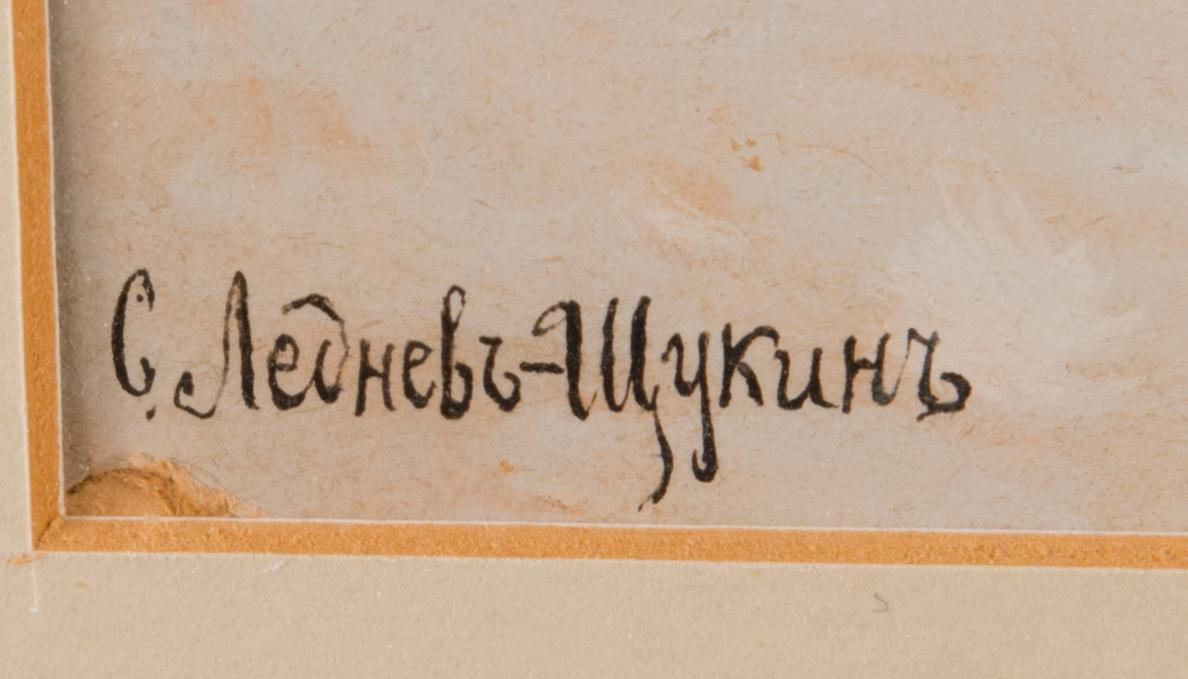 С. Ледневъ-Щукинъ